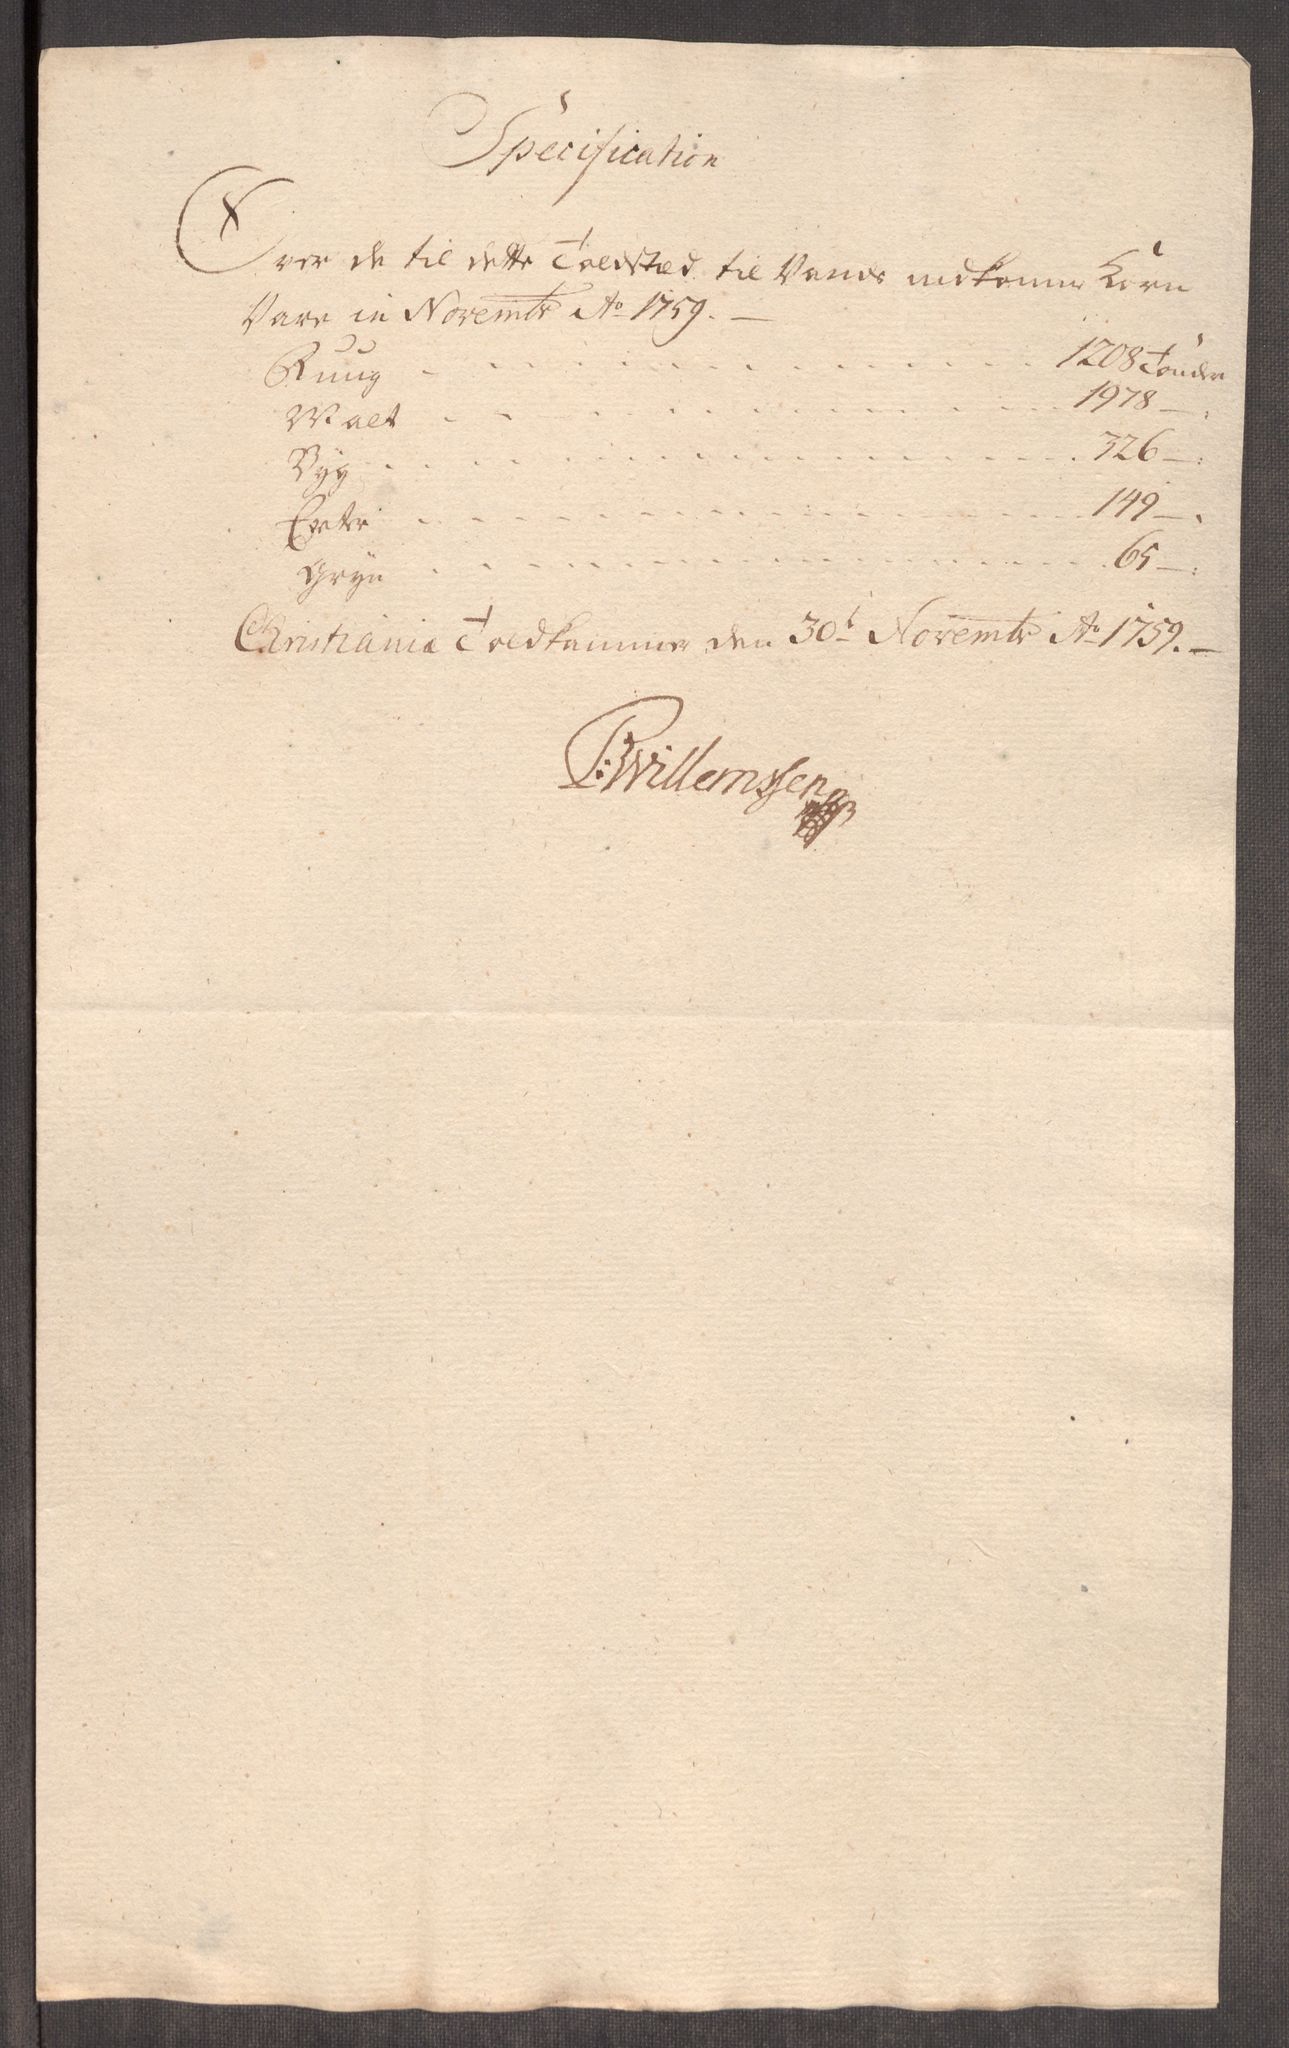 Specification
Over de til dette Toldsted til Vands indkomne Korn
Vare in Novembr Ao 1759.—
Ruug - - - - 1208 Tønder
Malt - - - - 1978 —
Byg - - - - 326 —
Erter - - - - 149 —
Gryn - - - - 65 —
Christiania Toldkammer den 30t Novembr Ao 1759.—
P: Willemssen